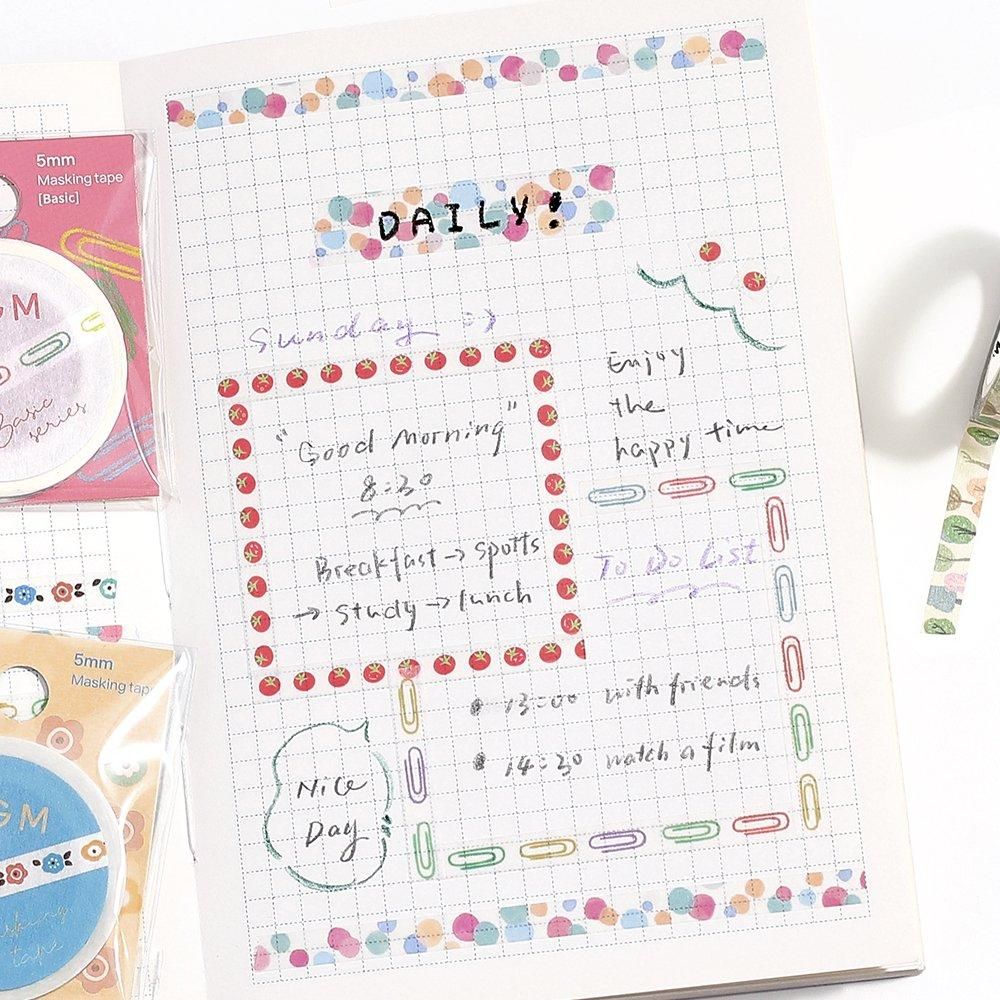 5mm
Masking tape
[Basic]
GM
Basic
series
5mm
Masking tape
GM
tape
DAILY!
Sunday :)
"Good Morning"
8:30
Breakfast → spotts
→ study → lunch
Enjoy
the
happy time
To Do List
• 13:00 with friends
• 14:30 watch a film
Nice
Day